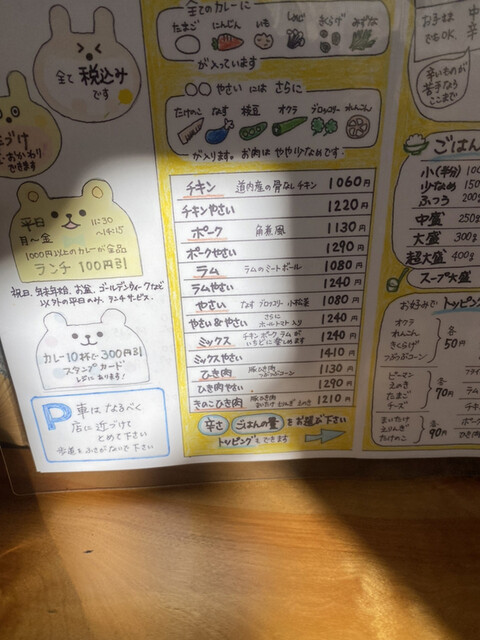 全て税込み
です
づけ
おかわり
できます
平日
月〜金
11:30
〜14:15
1000円以上のカレーが全品
ランチ 100円引
祝日、年末年始、お盆、ゴールデンウィークなど
以外の平日のみ、ランチサービス。
カレー10杯で300円引
スタンプカード
もあります!
P 車はなるべく
店に近づけて
とめて下さい
歩道をふさがないで下さい
全てのカレーに
たまご にんじん いも しめじ きくらげ みずな
が入っています
○○やさいにはさらに
たけのこ なす 枝豆 オクラ ブロッコリー れんこん
が入ります。お肉はやや少なめです。
チキン 道内産の骨なしチキン 1060円
チキンやさい 1220円
ポーク 角煮風 1130円
ポークやさい 1290円
ラム ラムのミートボール 1080円
ラムやさい 1240円
やさい なす ブロッコリー 小松菜 1080円
やさい&やさい さらにホールトマト入り 1240円
ミックス チキン ポーク ラムがいちどに楽しめます 1240円
ミックスやさい 1410円
ひき肉 豚ひき肉 つぶつぶコーン 1130円
ひき肉やさい 1290円
きのこひき肉 豚ひき肉 まいたけ えりんぎ えのき 1210円
辛さ ごはんの量 をお選び下さい
トッピングもできます
お子様
でもOK
辛いものが
苦手なら
ここまで
ごはん
小(半分) 100
少なめ 150
ふつう 200
中盛 250
大盛 300g
超大盛 400g
スープ大盛
お好みでトッピ
オクラ
れんこん
きくらげ
つぶつぶコーン
各50円
ピーマン
えのき
たまご
チーズ
各70円
まいたけ
えりんぎ
たけのこ
各90円